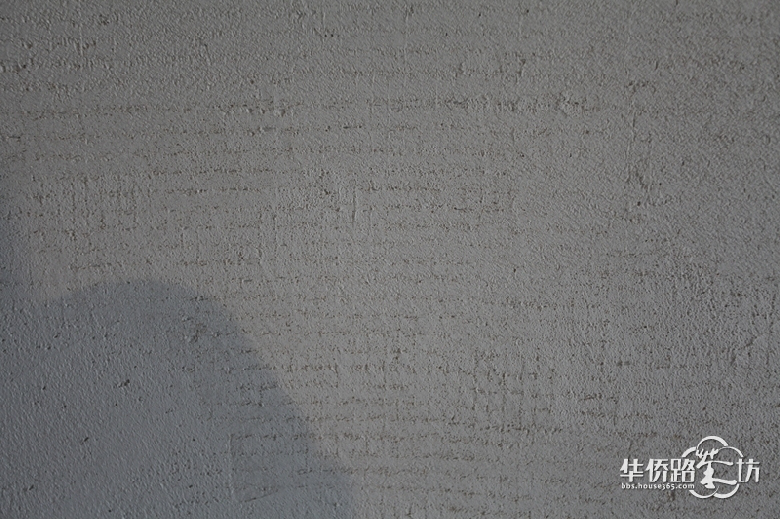 华侨路茶坊
bbs.house365.com